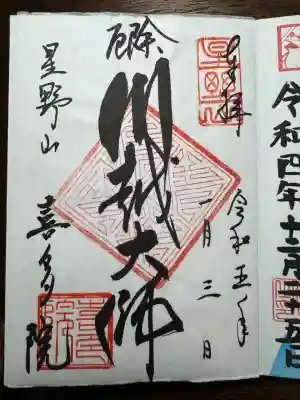 令和四年十二月二十五日
奉拝
令和五年
一月三日
厄除
川越大師
星野山
喜多院